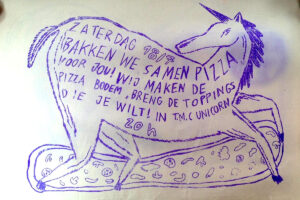 ZATERDAG 18/4
BAKKEN WE SAMEN PIZZA
VOOR JOU! WIJ MAKEN DE
PIZZA BODEM, BRENG DE TOPPINGS
DIE JE WILT! IN T.M.C UNICORN
20h